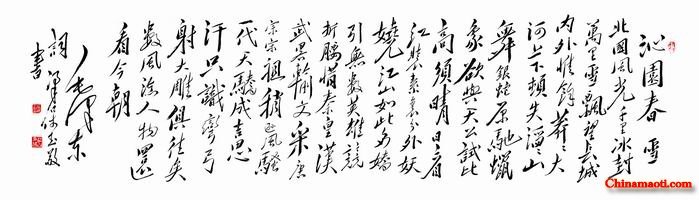 沁園春 雪
北國風光千里冰封
萬里雪飄望長城
內外惟餘莽莽大
河上下頓失滔滔山
舞銀蛇原馳蠟
象欲與天公試比
高須晴日看
紅裝素裹分外妖
嬈江山如此多嬌
引無數英雄競
折腰惜秦皇漢
武略輸文采唐
宗宋祖稍遜風騷
一代天驕成吉思
汗只識彎弓
射大雕俱往矣
數風流人物還
看今朝
毛澤東
詞
書
Chinamaoti.com